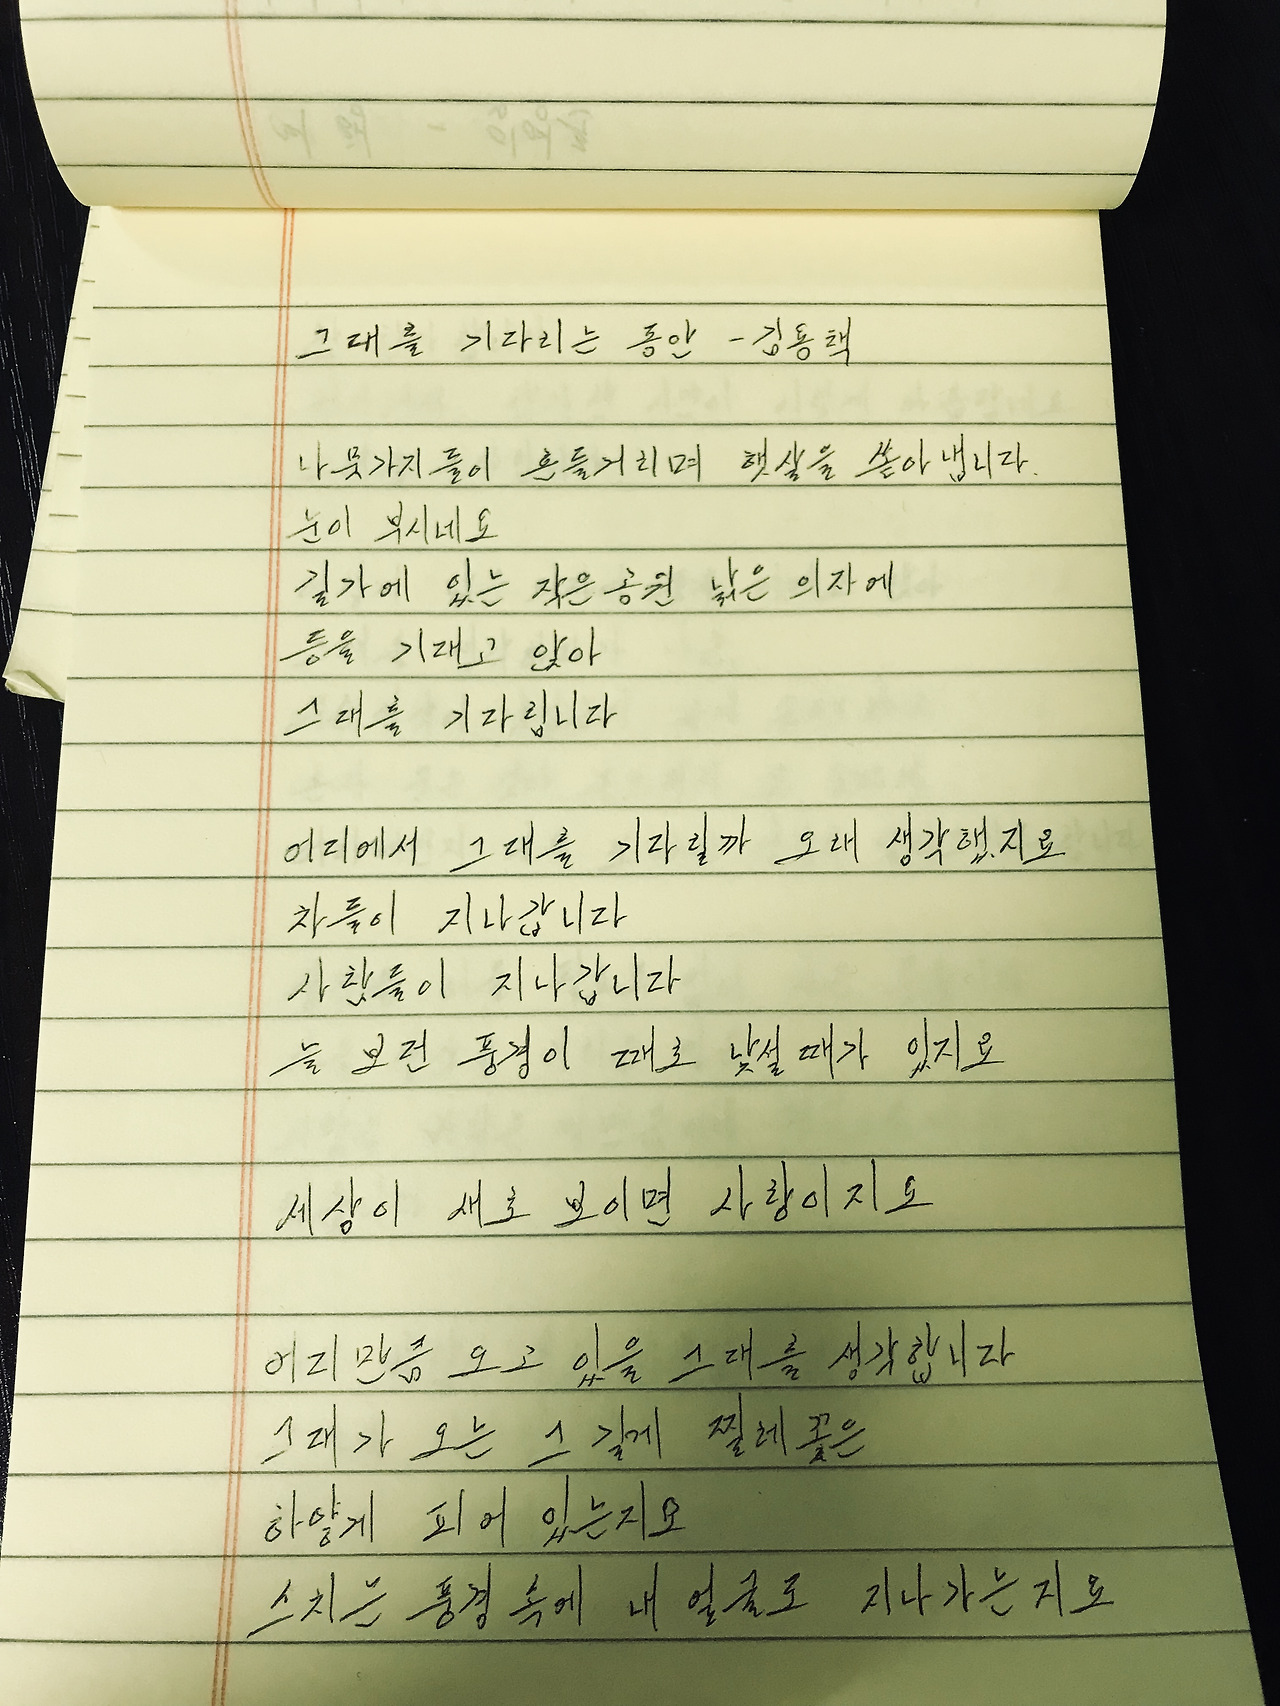 그대를 기다리는 동안 - 김용택
나뭇가지들이 흔들거리며 햇살을 쏟아냅니다.
눈이 부시네요
길가에 있는 작은 공원 낡은 의자에
등을 기대고 앉아
그대를 기다립니다
어디에서 그대를 기다릴까 오래 생각했지요
차들이 지나갑니다
사람들이 지나갑니다
늘 보던 풍경이 때로 낯설 때가 있지요
세상이 새로 보이면 사랑이지요
어디만큼 오고 있을 그대를 생각합니다
그대가 오는 그 길에 찔레꽃은
하얗게 피어 있는지요
스치는 풍경 속에 내 얼굴도 지나가는지요